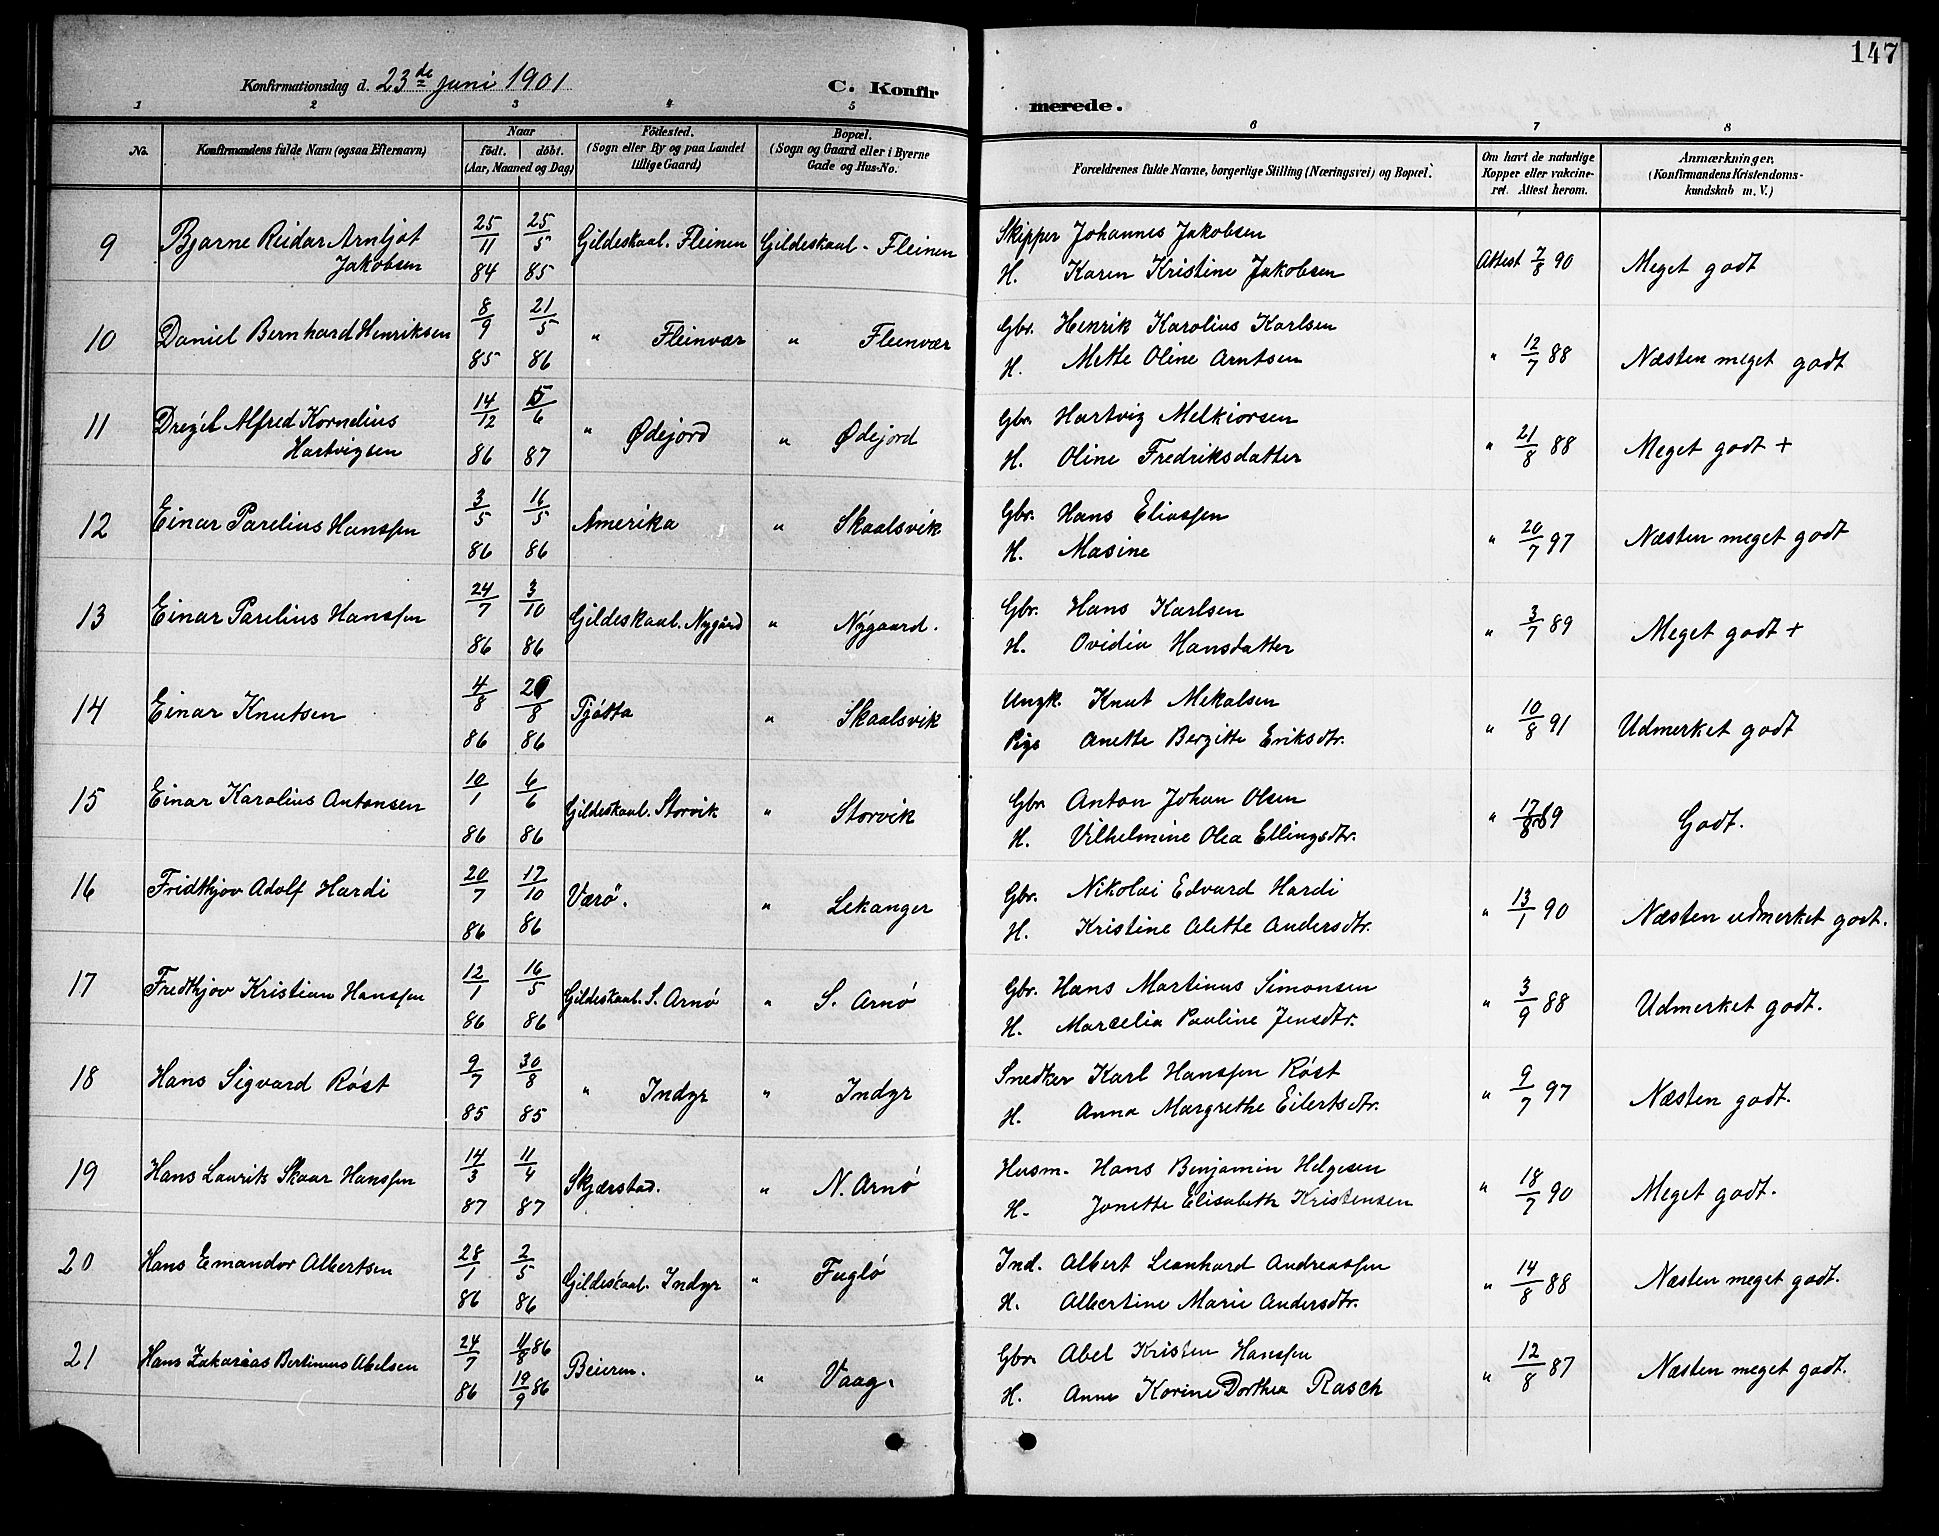 147
Konfirmationsdag d. 23de juni 1901
C. Konfirmerede.
1 2 3 4 5 6 7 8
No.
Konfirmandens fulde Navn (ogsaa Efternavn)
Naar
født. døbt.
(Aar, Maaned og Dag)
Fødested.
(Sogn eller By og paa Landet
tillige Gaard)
Bopæl.
(Sogn og Gaard eller i Byerne
Gade og Hus-No.
Forældrenes fulde Navne, borgerlige Stilling (Næringsvei) og Bopæl.
Om havt de naturlige
Kopper eller vakcine-
ret. Attest herom.
Anmærkninger.
(Konfirmandens Kristendoms-
kundskab m. V.)
9 Bjarne Reidar Arnljot Jakobsen 25/11 84 25/5 85 Gildeskaal. Fleinen Gildeskaal - Fleinen Skipper Johannes Jakobsen
H. Karen Kristine Jakobsen Attest 7/8 90 Meget godt
10 Daniel Bernhard Henriksen 8/9 85 21/5 86 " Fleinvær " Fleinvær Gbr. Henrik Karolius Karlsen
H. Mette Oline Arntsen " 12/7 88 Næsten meget godt
11 Alfred Kornelius Hartvigsen 14/12 86 5/6 87 " Ødejord " Ødejord Gbr. Hartvig Melkiorsen
H. Oline Fredriksdatter " 21/8 88 Meget godt +
12 Einar Parelius Hanssen 3/5 86 16/5 86 Amerika " Skaalsvik Gbr. Hans Eliassen
H. Masine " 20/7 97 Næsten meget godt
13 Einar Parelius Hanssen 24/7 86 3/10 86 Gildeskaal. Nygård " Nygaard. Gbr. Hans Karlsen
H. Ovidia Hansdatter " 3/7 89 Meget godt +
14 Einar Knutsen 4/8 86 /8 86 Tjøtta " Skaalsvik Ungk. Knut Mekalsen
Pige Anette Bergitte Eriksdtr. " 10/8 91 Udmerket godt
15 Einar Karolius Antonsen 10/1 86 6/6 86 Gildeskaal. Storvik " Storvik Gbr Anton Johan Olsen
H. Vilhelmine Olea Ellingsdtr. " 17/8 89 Godt.
16 Fridthjov Adolf Hardi 20/7 86 17/10 86 Værö. " Lekanger Gbr. Nikolai Edvard Hardi
H. Kristine Alette Andersdtr. " 13/1 90 Næsten udmerket godt.
17 Fredthjov Kristian Hanssen 12/1 86 16/5 86 Gildeskaal. S. Arnø " S. Arnø Gbr. Hans Martinus Simonsen
H. Marcelia Pauline Jensdtr. " 3/9 88 Udmerket godt.
18 Hans Sigvard Røst 9/7 85 30/8 85 " Indyr " Indyr Snedker Karl Hanssen Røst
H. Anna Margrethe Eilertsdtr. " 9/7 97 Næsten godt.
19 Hans Laurits Skaar Hanssen 14/3 87 11/4 87 Skjærstad. " N. Arnø Husm. Hans Benjamin Helgesen
H. Jonette Elisabeth Kristensen " 18/7 90 Meget godt.
20 Hans Emandor Albertsen 28/1 86 2/5 86 Gildeskaal. Indyr " Fuglø Ind. Albert Leonhard Andreassen
H. Albertine Marie Andersdtr. " 14/8 88 Næsten meget godt.
21 Hans Zakarias Bertinus Abelsen 24/7 86 11/8 86 19/9 86 Beieren. " Vaag. Gbr. Abel Kristen Hanssen
H. Anne Korine Dorthea Rasch " 12/8 87 Næsten meget godt.